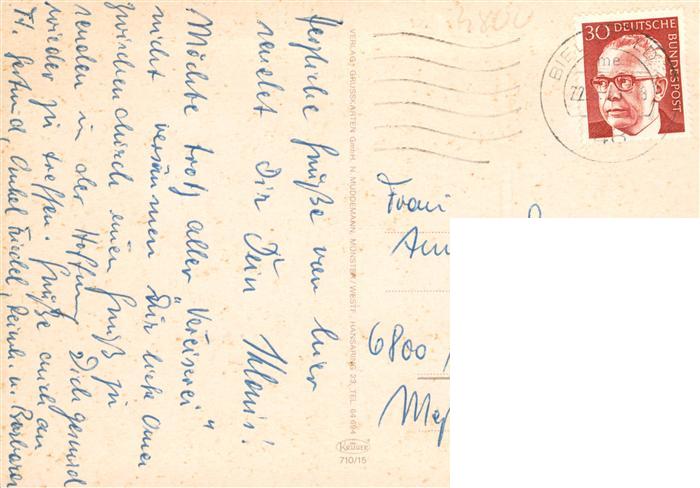 Herzliche Grüße von hier
sendet Dir Dein Klaus!
Möchte trotz aller "Vereiserei"
nicht versäumen Dir liebe Omi
zwischendurch einen Gruß zu
senden in der Hoffnung Dich gesund
wieder zu treffen. Grüße auch an
Onkel Friedel, u. Barbara
VERLAG: GRUSSKARTEN GmbH. N. MÜDDEMANN, MÜNSTER/WESTF. HANSARING 23, TEL. 64694
KRÜGER
710/15
30 DEUTSCHE BUNDESPOST
BIEL
22
Frau
6800